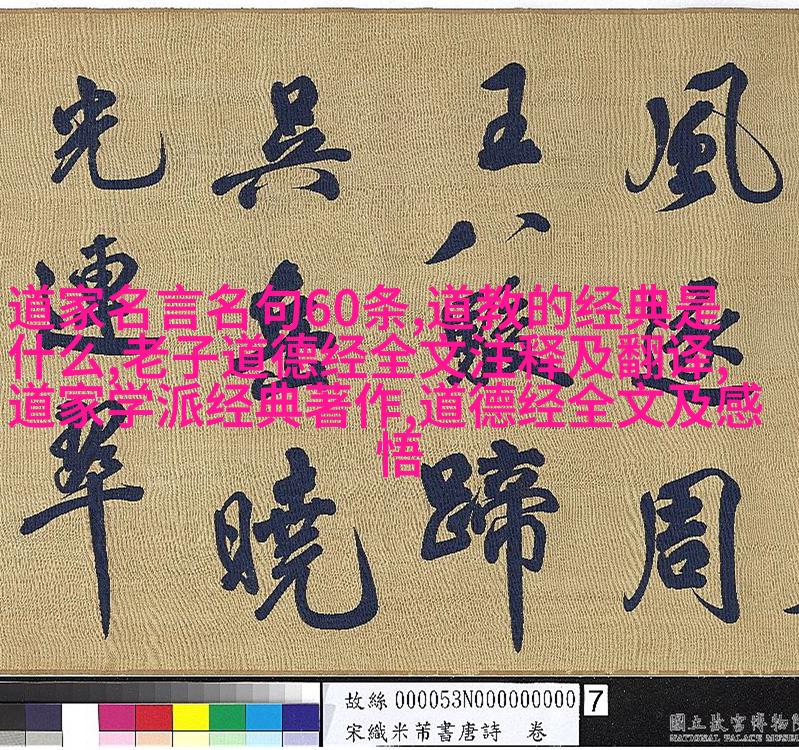 風逐周
王八駿蹄
吳岳曉
光連翠
道家名言名句60条,道教的经典是
什么,老子道德经全文注释及翻译,
道家学派经典著作,道德经全文及感
悟
故絲000053N000000000 7
宋織米芾書唐詩 卷
國立故宮博物院
NATIONAL PALACE MUSEUM